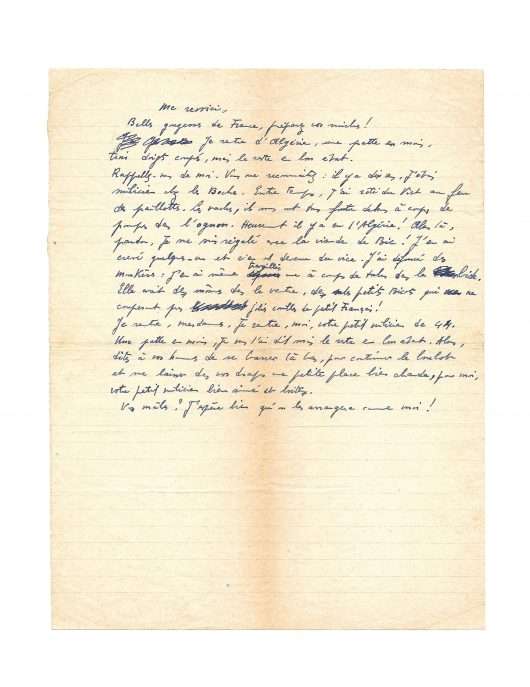 Me revoici,
Belles gueuses de France, préparez vos miches !
Je rentre d'Algérie, une patte en moins,
trois doigts coupés, mais le reste en bon état.
Rappelez-vous de moi. Vous me reconnaîtrez : il y a dix ans, j'étais
milicien chez les Boches. Entre temps, j'ai rôti du Viet au feu
de paillottes. Les vaches, ils nous ont foutu dehors à coups de
pompes dans l'oignon. Heureusement il y a eu l'Algérie ! Alors là,
pardon, je me suis régalé avec la viande de Bic ! J'en ai
crevé quelques-uns et c'en est devenu du vice. J'ai des
moukères. J'en ai même une à coups de talon dans le bide.
Elle avait des mômes dans le ventre, des petits Bicots qui ne
couperont pas de petit Français !
Je rentre, mesdames, je rentre, moi, votre petit milicien de 44.
Une patte en moins, je vous l'ai dit mais le reste en bon état. Alors,
dites à vos hommes de se barrer là-bas, pour continuer le boulot
et me laisser dans vos draps une petite place bien chaude, pour moi,
votre petit milicien bien aimé et
Vos mâles ? J'espère bien qu'on les arrangera comme moi !